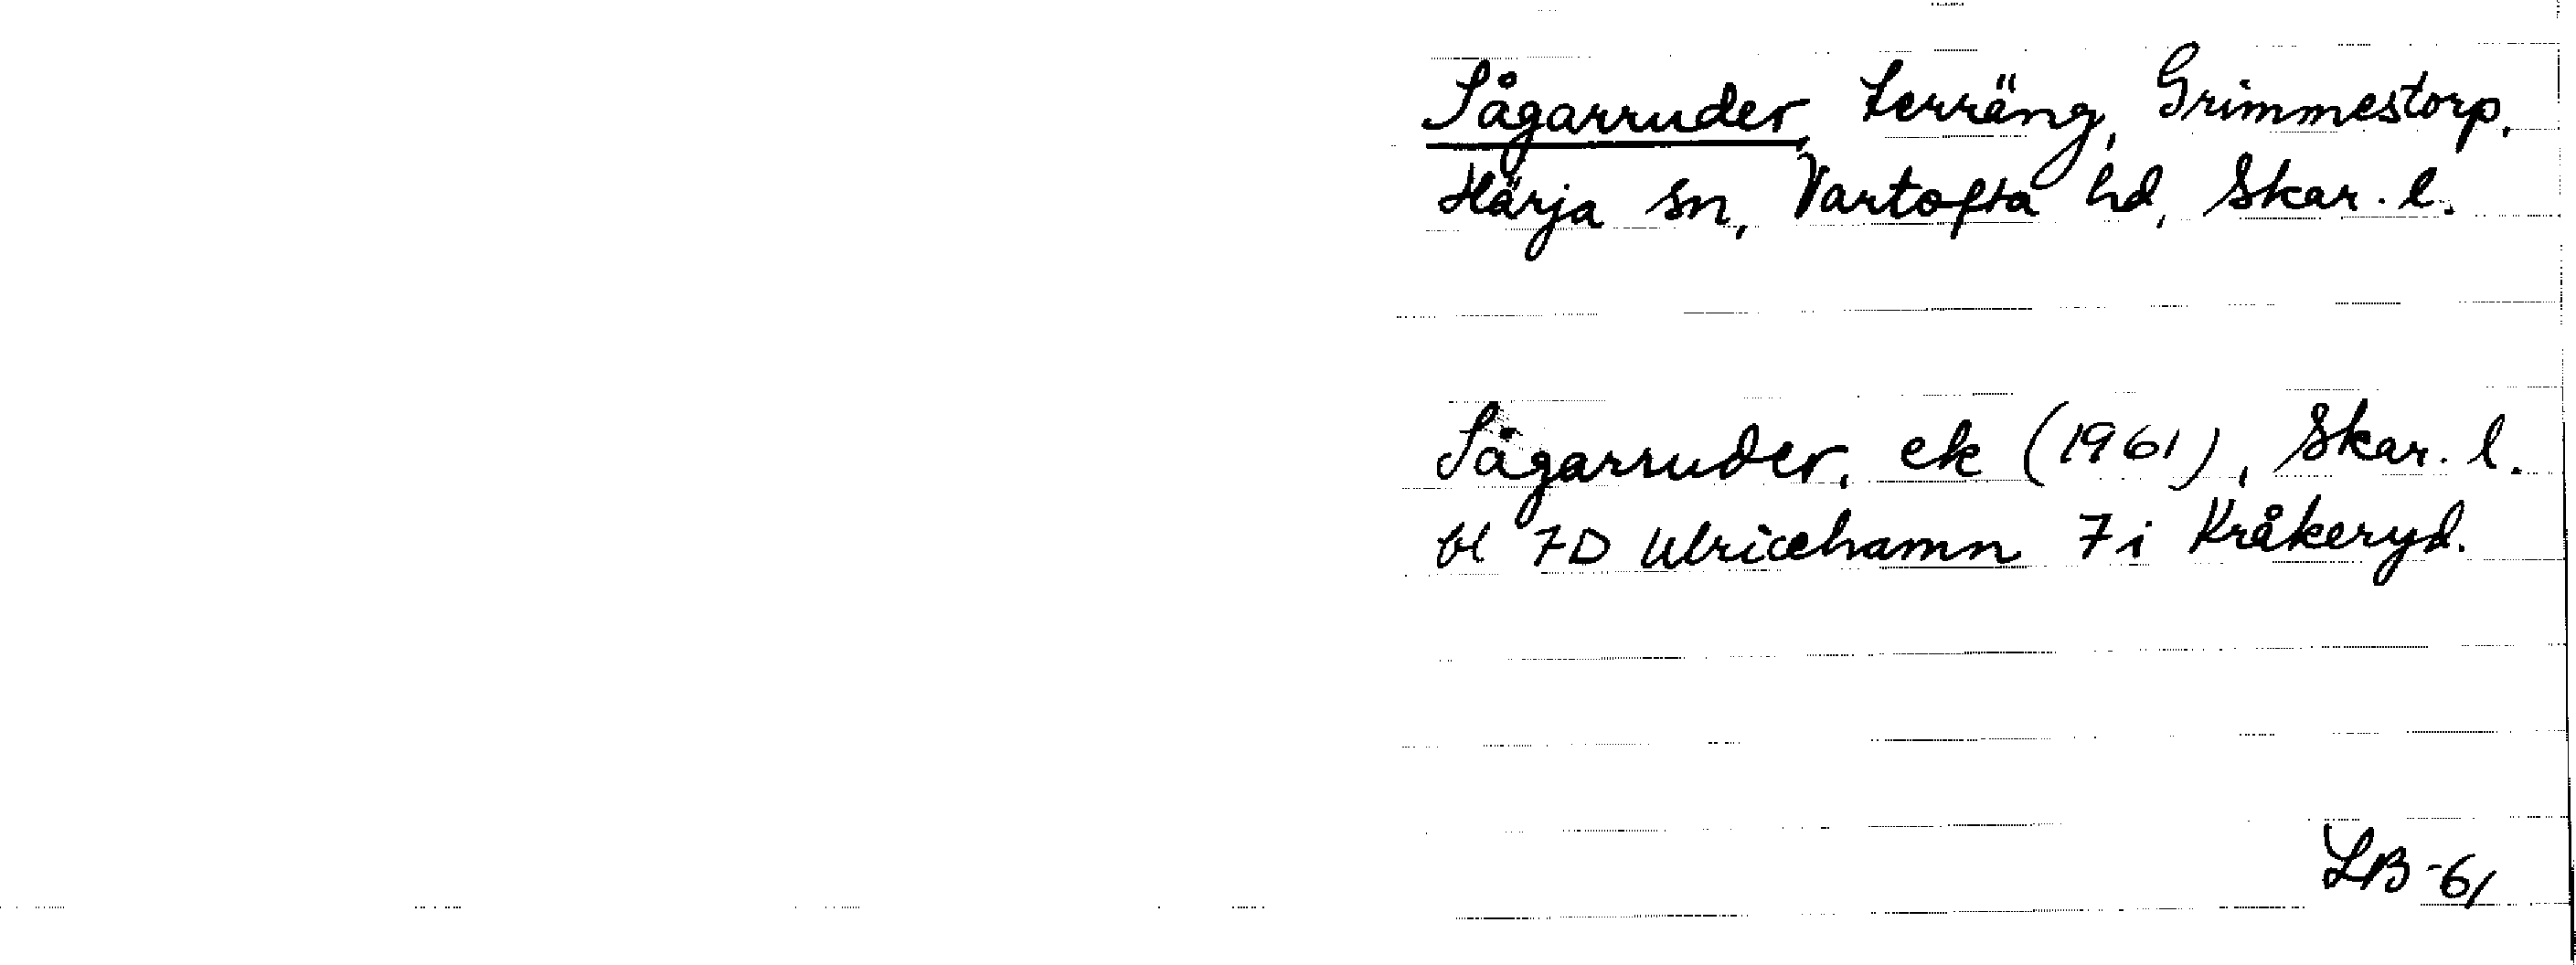 Sågarruder, terräng, Grimmestorp,
Härja sn, Vartofta hd, Skar. l.
Sågarruder, ek (1961), Skar. l.
bl 7D Ulricehamn 7i Kråkeryd.
LB-61